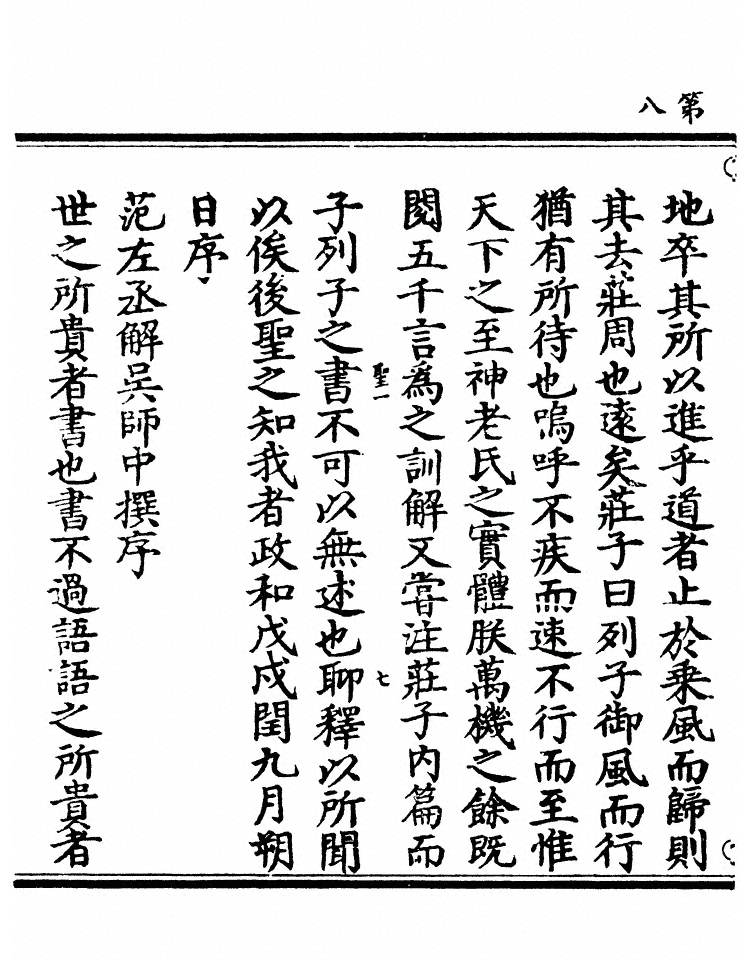 第八
地卒其所以進乎道者止於乗風而歸則
其去莊周也遠矣莊子曰列子御風而行
猶有所待也嗚呼不疾而速不行而至惟
天下之至神老氏之實體朕萬機之餘既
閱五千言爲之訓解又嘗注莊子內篇而
聖一
七
子列子之書不可以無述也聊釋以所聞
以俟後聖之知我者政和戊戌閏九月朔
日序
范左丞解吳師中撰序
世之所貴者書也書不過語語之所貴者